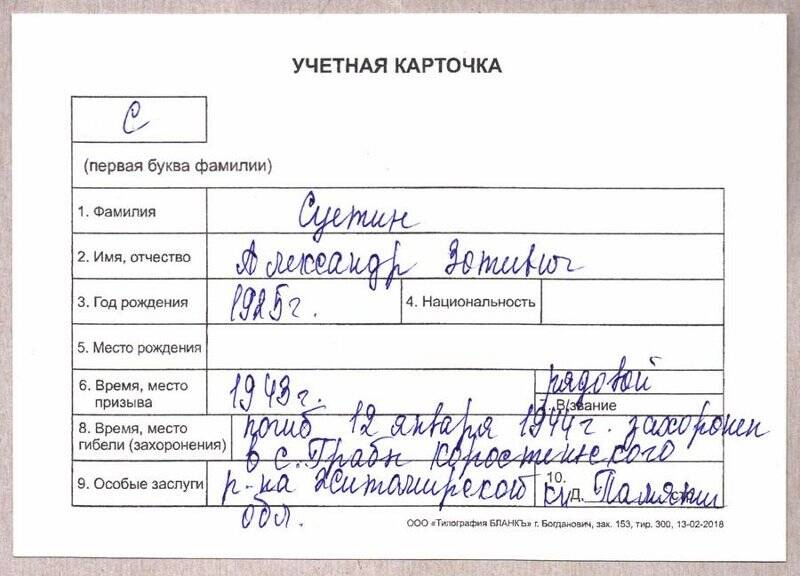 УЧЕТНАЯ КАРТОЧКА
С
(первая буква фамилии)
1. Фамилия Суетин
2. Имя, отчество Александр Зотивич
3. Год рождения 1925г. 4. Национальность
5. Место рождения
6. Время, место призыва 1943г. рядовой
7. В/звание
8. Время, место гибели (захоронения) погиб 12 января 1944г. захоронен
в с. Грабы Коростенского
9. Особые заслуги р-на Житомирской 10. Д. кн. Памяти
обл.
ООО «Типография БЛАНКЪ» г. Богданович, зак. 153, тир. 300, 13-02-2018